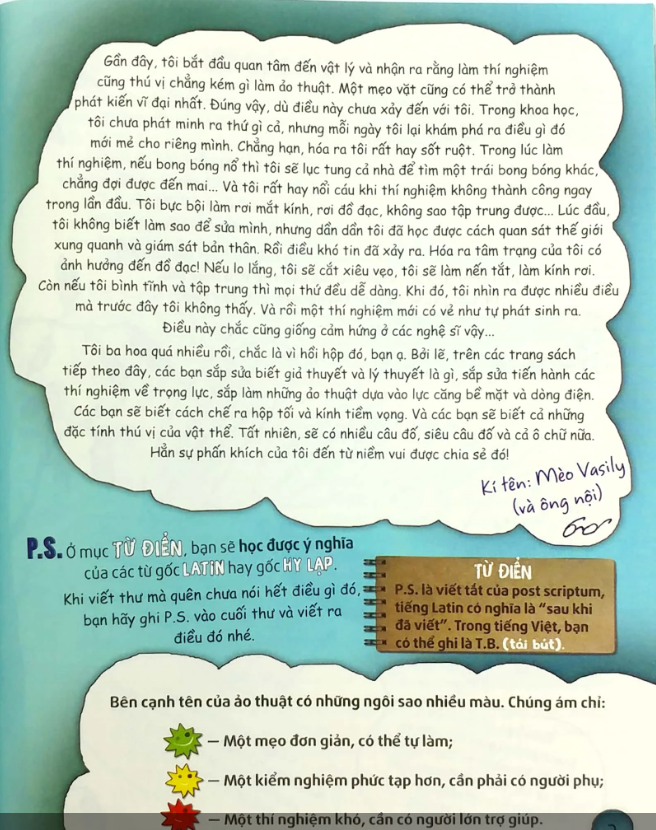 Gần đây, tôi bắt đầu quan tâm đến vật lý và nhận ra rằng làm thí nghiệm
cũng thú vị chẳng kém gì làm ảo thuật. Một mẹo vặt cũng có thể trở thành
phát kiến vĩ đại nhất. Đúng vậy, dù điều này chưa xảy đến với tôi. Trong khoa học,
tôi chưa phát minh ra thứ gì cả, nhưng mỗi ngày tôi lại khám phá ra điều gì đó
mới mẻ cho riêng mình. Chẳng hạn, hóa ra tôi rất hay sốt ruột. Trong lúc làm
thí nghiệm, nếu bong bóng nổ thì tôi sẽ lục tung cả nhà để tìm một trái bong bóng khác,
chẳng đợi được đến mai... Và tôi rất hay nổi cáu khi thí nghiệm không thành công ngay
trong lần đầu. Tôi bực bội làm rơi mắt kính, rơi đồ đạc, không sao tập trung được... Lúc đầu,
tôi không biết làm sao để sửa mình, nhưng dần dần tôi đã học được cách quan sát thế giới
xung quanh và giám sát bản thân. Rồi điều khó tin đã xảy ra. Hóa ra tâm trạng của tôi có
ảnh hưởng đến đồ đạc! Nếu lo lắng, tôi sẽ cắt xiêu vẹo, tôi sẽ làm nến tắt, làm kính rơi.
Còn nếu tôi bình tĩnh và tập trung thì mọi thứ đều dễ dàng. Khi đó, tôi nhìn ra được nhiều điều
mà trước đây tôi không thấy. Và rồi một thí nghiệm mới có vẻ như tự phát sinh ra.
Điều này chắc cũng giống cảm hứng ở các nghệ sĩ vậy...
Tôi ba hoa quá nhiều rồi, chắc là vì hồi hộp đó, bạn ạ. Bởi lẽ, trên các trang sách
tiếp theo đây, các bạn sắp sửa biết giả thuyết và lý thuyết là gì, sắp sửa tiến hành các
thí nghiệm về trọng lực, sắp làm những ảo thuật dựa vào lực căng bề mặt và dòng điện.
Các bạn sẽ biết cách chế ra hộp tối và kính tiềm vọng. Và các bạn sẽ biết cả những
đặc tính thú vị của vật thể. Tất nhiên, sẽ có nhiều câu đố, siêu câu đố và cả ô chữ nữa.
Hẳn sự phấn khích của tôi đến từ niềm vui được chia sẻ đó!
Kí tên: Mèo Vasily
(và ông nội)
P.S. Ở mục TỪ ĐIỂN, bạn sẽ học được ý nghĩa
của các từ gốc LATIN hay gốc HY LẠP.
Khi viết thư mà quên chưa nói hết điều gì đó,
bạn hãy ghi P.S. vào cuối thư và viết ra
điều đó nhé.
TỪ ĐIỂN
P.S. là viết tắt của post scriptum,
tiếng Latin có nghĩa là "sau khi
đã viết". Trong tiếng Việt, bạn
có thể ghi là T.B. (tái bút).
Bên cạnh tên của ảo thuật có những ngôi sao nhiều màu. Chúng ám chỉ:
– Một mẹo đơn giản, có thể tự làm;
– Một kiểm nghiệm phức tạp hơn, cần phải có người phụ;
– Một thí nghiệm khó, cần có người lớn trợ giúp.